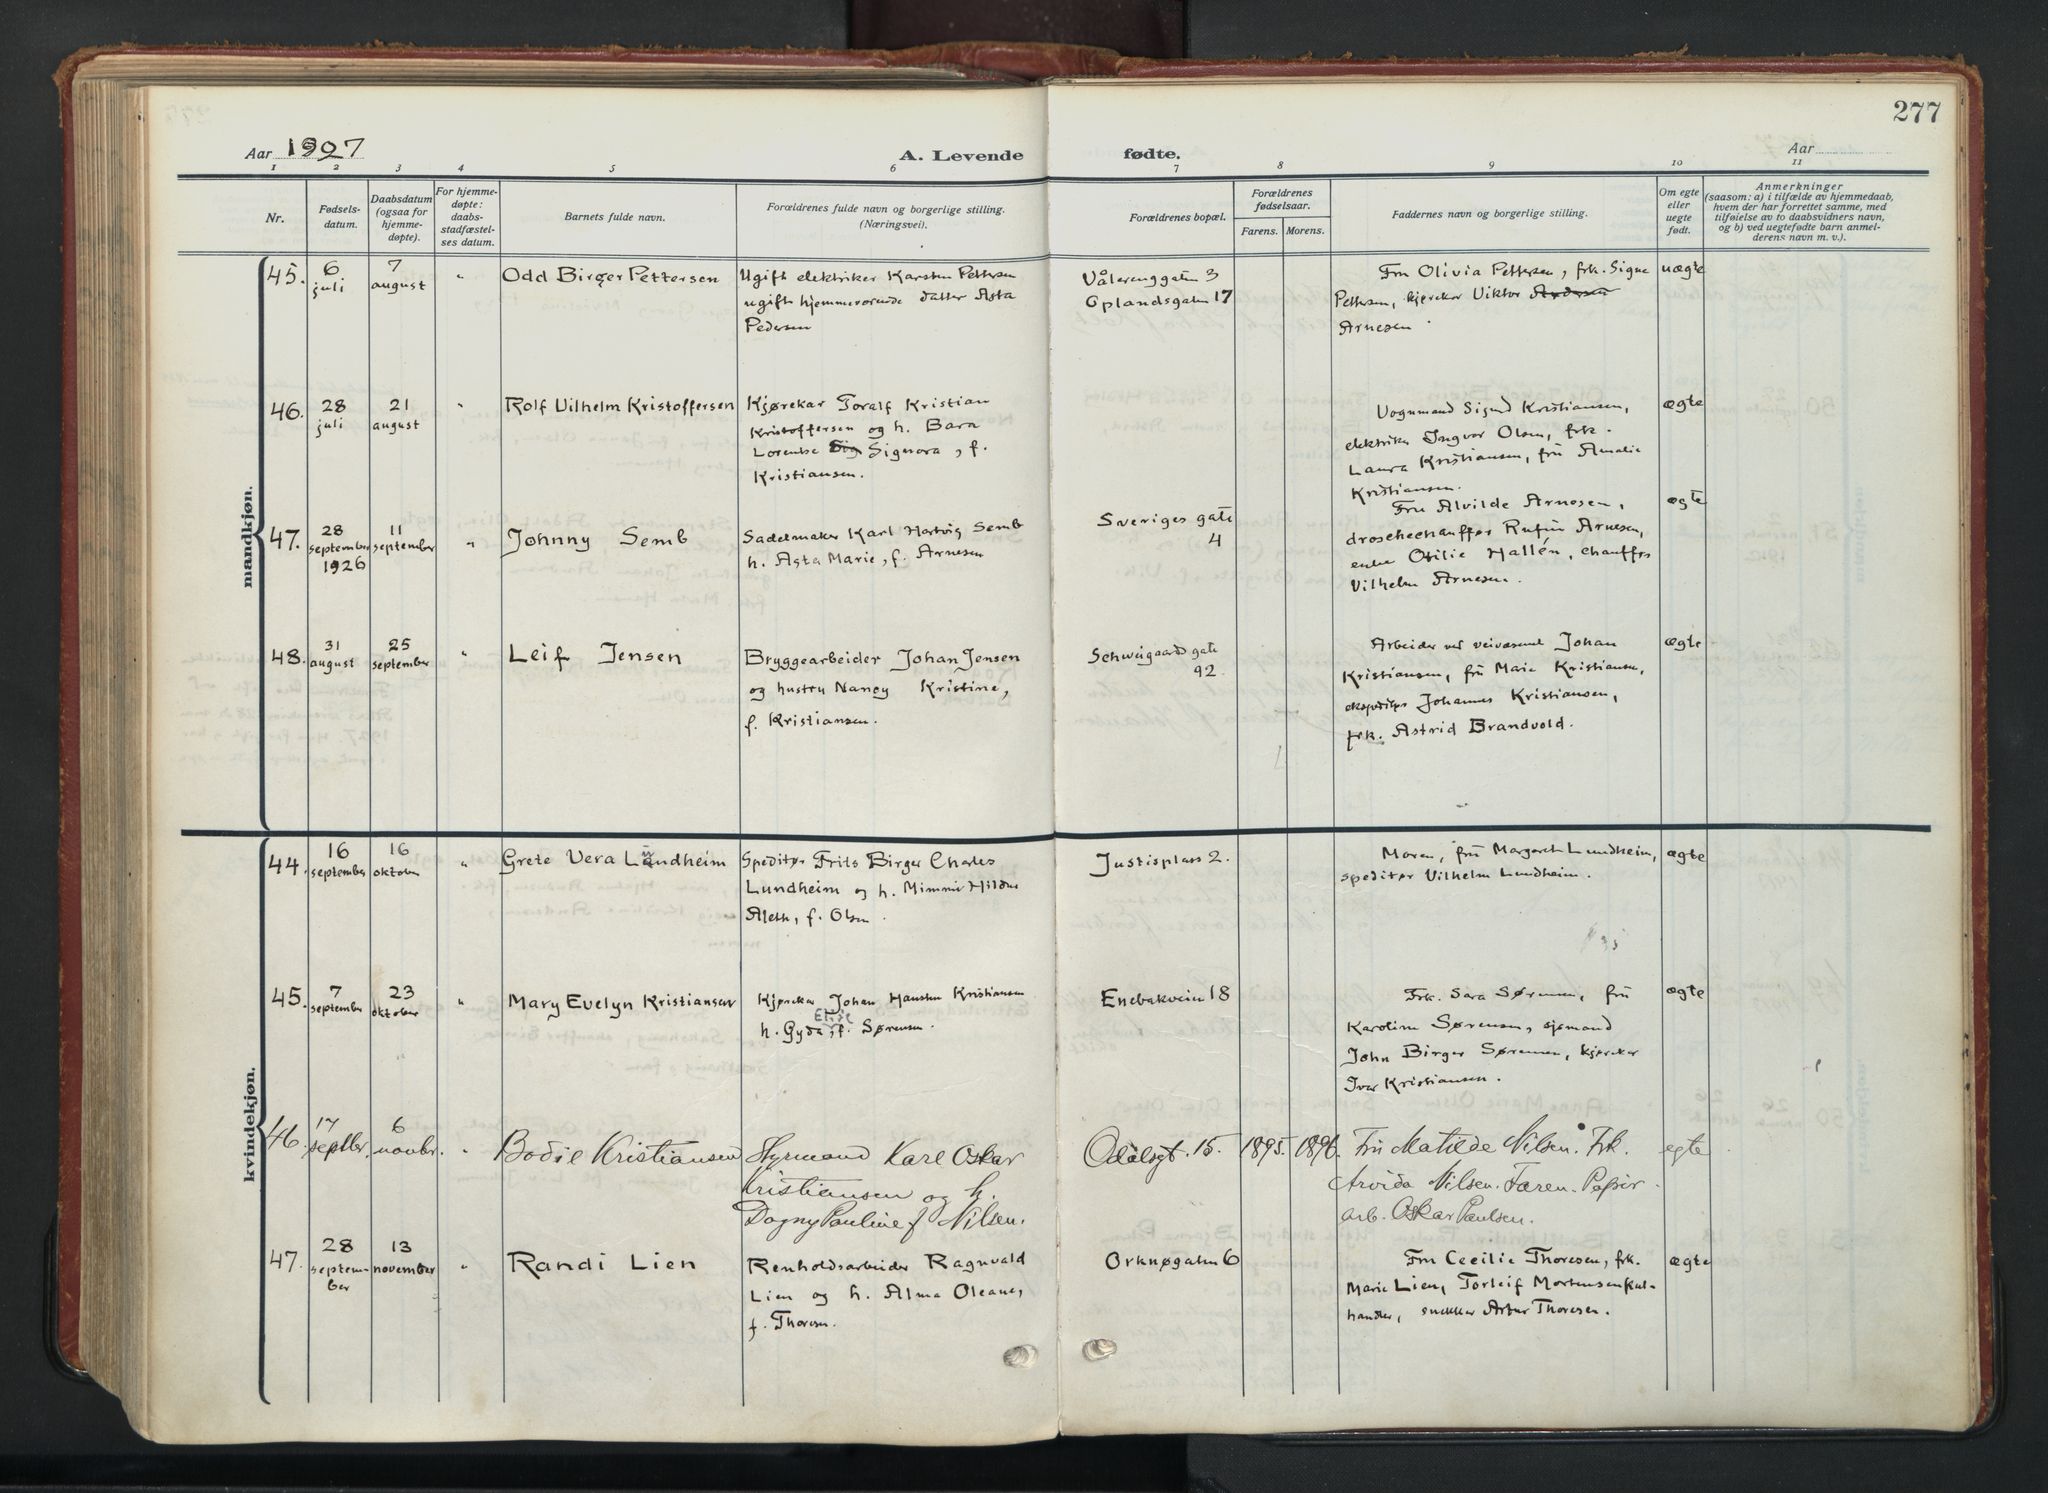 277
Aar 1927
A. Levende
fødte.
Aar
1 2 3 4 5 6 7 8 9 10 11
Nr.
Fødsels-
datum.
Daabsdatum
(ogsaa for
hjemme-
døpte).
For hjemme-
døpte:
daabs-
stadfæstel-
ses datum.
Barnets fulde navn.
Forældrenes fulde navn og borgerlige stilling.
(Næringsvei).
Forældrenes bopæl.
Forældrenes
fødselsaar.
Farens. Morens.
Faddernes navn og borgerlige stilling.
Om egte
eller
uegte
født.
Anmerkninger
(saasom: a) i tilfælde av hjemmedaab,
hvem der har forrettet samme, med
tilføielse av to daabsvidners navn,
og b) ved uegtefødte barn anmel-
derens navn m. v.).
mandkjøn.
45.
6
juli
7
august
"
Odd Birger Pettersen
Ugift elektriker Karsten Pettersen
ugift hjemmeværende datter Asta
Pedersen
Vålerenggaten 3
Oplandsgaten 17
Fru Olivia Pettersen, frk. Signe
Pettersen, kjørekar Viktor Andersen
Arnesen
uægte
46.
28
juli
21
august
"
Rolf Vilhelm Kristoffersen
Kjørekar Toralf Kristian
Kristoffersen og h. Bara
Lorentse Sig Signora, f.
Kristiansen.
Vognmand Sigurd Kristiansen,
elektriker Ingvar Olsen, frk.
Laura Kristiansen, fru Amalie
Kristiansen.
ægte
47.
28
september
1926
11
september
"
Johnny Semb
Sadelmaker Karl Hartvig Semb
h. Asta Marie, f. Arnesen
Sveriges gate
4
Fru Alvilde Arnesen,
droschechauffør Rufin Arnesen,
enke Otilie Hallén, chauffør
Vilhelm Arnesen.
ægte
48.
31
august
25
september
"
Leif Jensen
Bryggearbeider Johan Jensen
og hustru Nancy Kristine,
f. Kristiansen.
Schweigaards gate
92.
Arbeider ved veivæsenet Johan
Kristiansen, fru Marie Kristiansen,
ekspeditør Johannes Kristiansen,
frk. Astrid Brandvold.
ægte
kvindekjøn.
44.
16
september
16
oktober
"
Grete Vera Lundheim
Speditør Frits Birger Charles
Lundheim og h. Mimmi Hildur
Aleth, f. Olsen.
Justisplass 2.
Moren, fru Margaret Lundheim,
speditør Vilhelm Lundheim.
ægte
45.
7
september
23
oktober
"
Mary Evelyn Kristiansen
Kjørekar Johan Hansten Kristiansen
h. Gyda Elise, f. Sørensen.
Enebakveien 18
Frk. Sara Sørensen, fru
Karoline Sørensen, sjømand
John Birger Sørensen, kjørekar
Ivar Kristiansen.
ægte
46.
17
septbr.
6
novbr.
"
Bodil Kristiansen
Styrmand Karl Oskar
Kristiansen og h.
Dagny Pauline f Nilsen.
Odalsgt. 15.
1895.
1896.
Fru Matilde Nilsen. Frk.
Arvida Nilsen. Faren. Papir
arb. Oskar Paulsen.
egte
47.
28
septem-
ber
13
november
"
Randi Lien
Renholdsarbeider Ragnvald
Lien og h. Alma Oleane,
f. Thoresen.
Orknøgaten 6
Fru Cecilie Thoresen, frk.
Marie Lien, Torleif Mortensen kul-
handler, snekker Artur Thoresen.
ægte